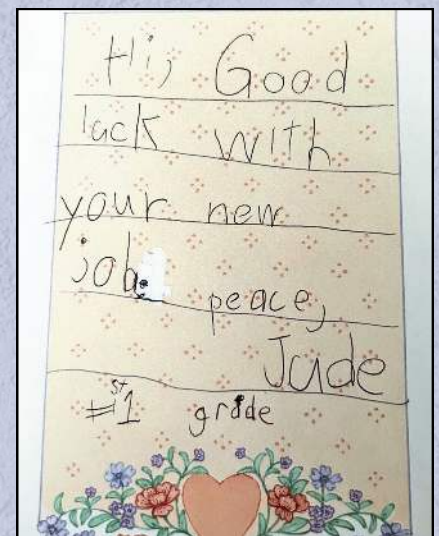 Hi, Good
lack with
your new
job.
peace,
Jude
#1st grade